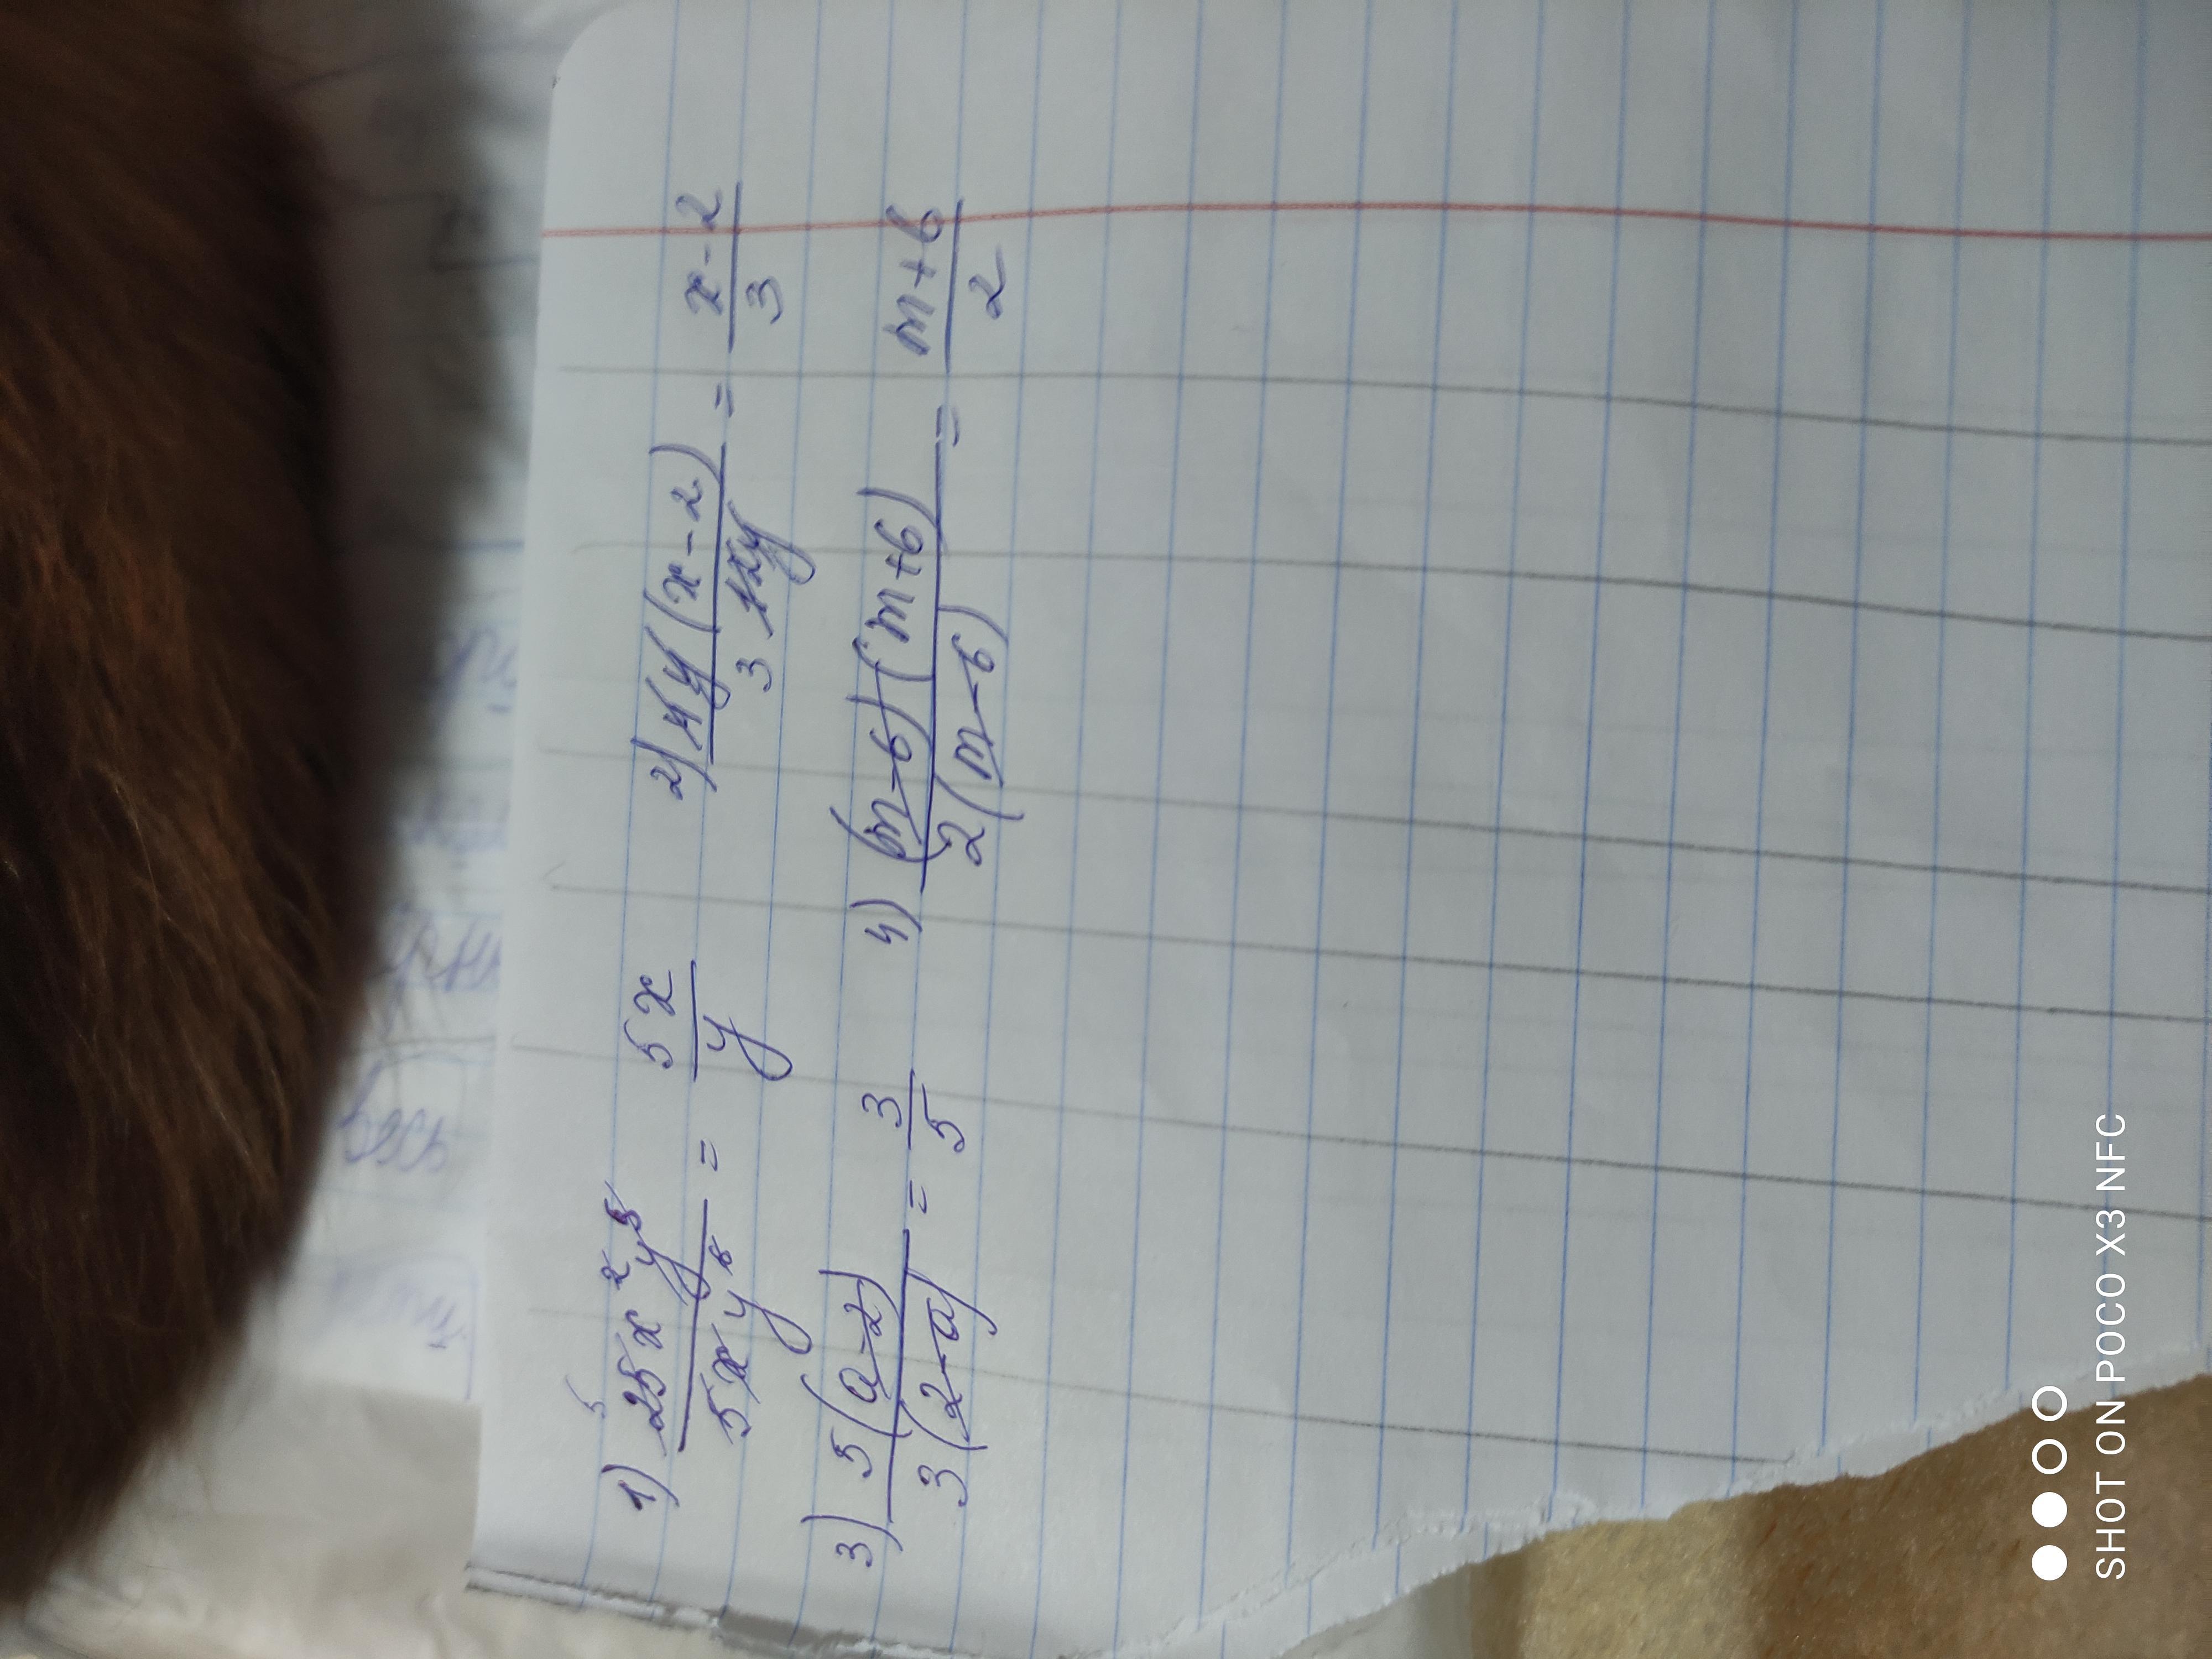 1) 25x²y⁵ / 5xy⁶ = 5x / y 2) 4y(x-2) / 3 12y = x-2 / 3
3) 5(a-2) / 3(2-a) = 3/5 4) (m-6)(m+6) / 2(m-6) = m+6 / 2
SHOT ON POCO X3 NFC